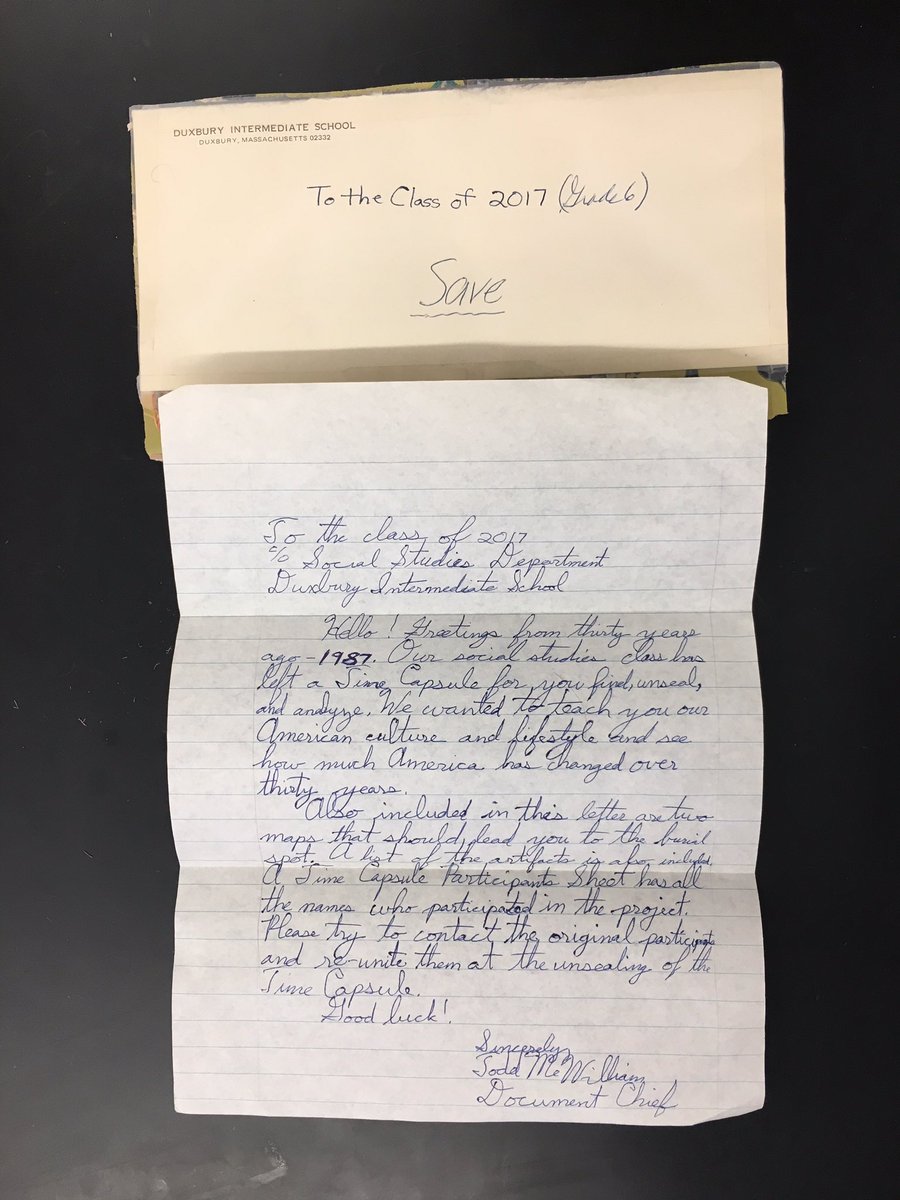 DUXBURY INTERMEDIATE SCHOOL
DUXBURY, MASSACHUSETTS 02332
To the Class of 2017 (Grade 6)
Save
To the class of 2017
c/o Social Studies Department
Duxbury Intermediate School
Hello! Greetings from thirty years
ago - 1987. Our social studies class has
left a Time Capsule for you find, unseal,
and analyze. We wanted to teach you our
American culture and lifestyle and see
how much America has changed over
thirty years.
Also included in this letter are two
maps that should lead you to the burial
spot. A list of the artifacts is also included.
A Time Capsule Participants Sheet has all
the names who participated in the project.
Please try to contact the original participants
and re-unite them at the unsealing of the
Time Capsule.
Good luck!
Sincerely,
Todd McWilliam
Document Chief